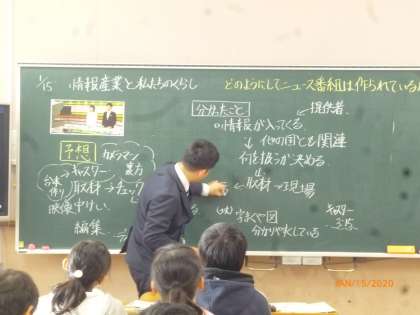 1/15 情報産業と私たちのくらし
どのようにしてニュース番組は作られている
予想
カメラマン
キャスター
台本作り
取材→チェック
映像中けい
編集
分かったこと
提供者
情報が入ってくる
↓ 他の国とも関連
何を扱うか決める
↓
← 取材→現場
字まくや図
分かりやくしている
キャスター
JAN/15/2020